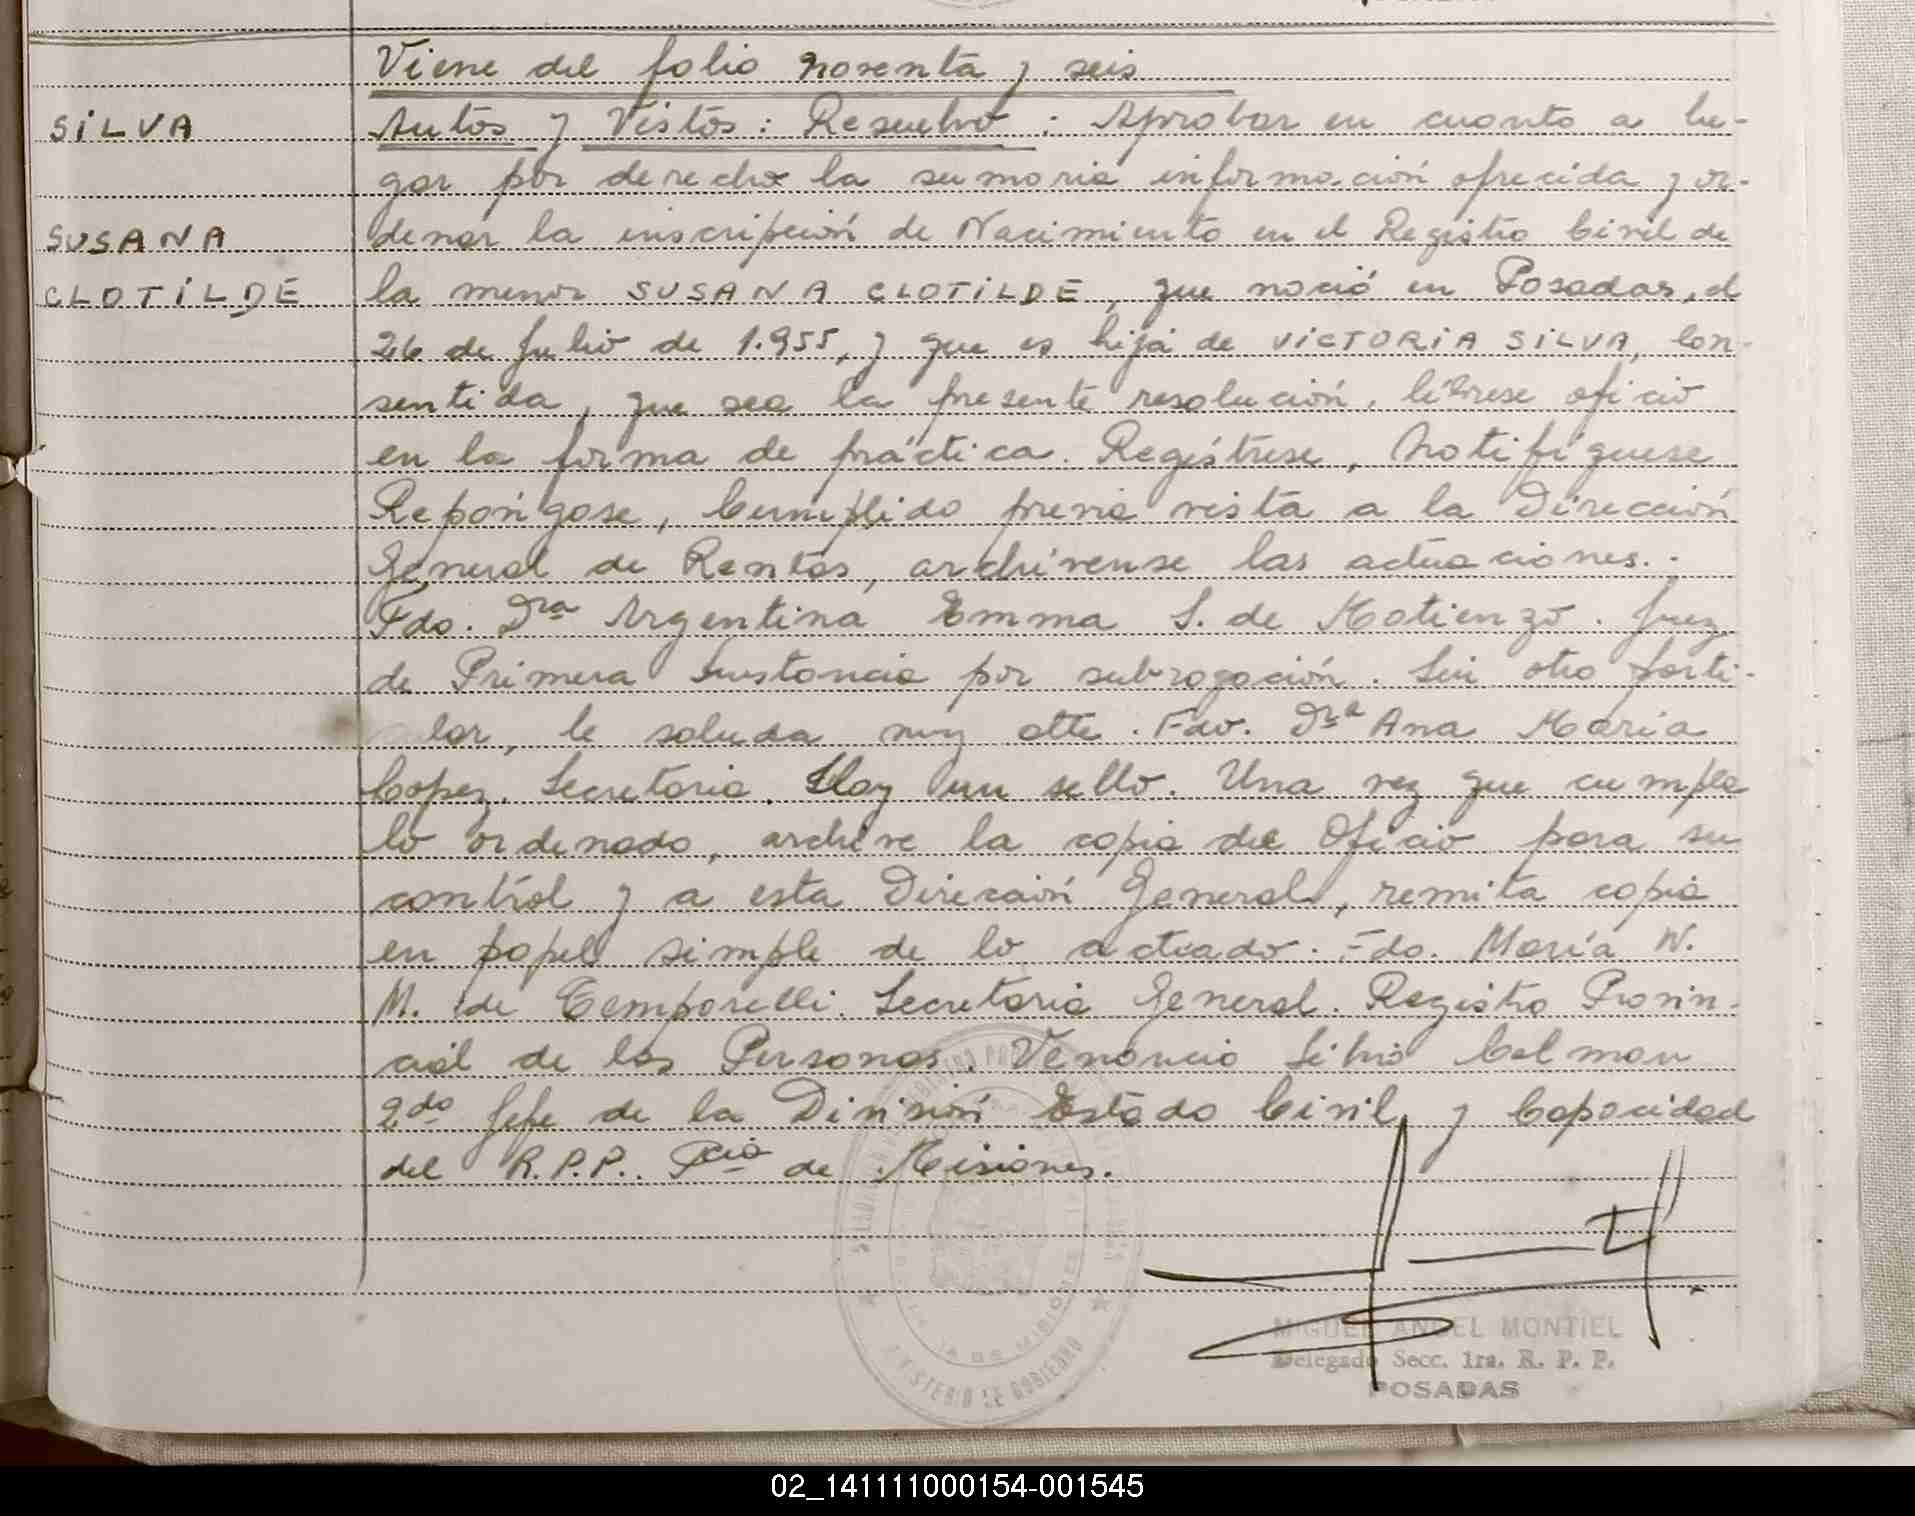 Viene del folio noventa y seis
SILVA
Autos y Vistos: Resuelvo: Aprobar en cuanto a lu-
gar por derecho la sumaria información ofrecida y or-
SUSANA
denar la inscripción de Nacimiento en el Registro Civil de
CLOTILDE
la menor SUSANA CLOTILDE, que nació en Posadas, el
26 de Julio de 1.955, y que es hija de VICTORIA SILVA, Con-
sentida, que sea la presente resolución, líbrese oficio
en la forma de práctica. Regístrese, Notifíquese
Repóngase, Cumplido previa vista a la Dirección
General de Rentas, archívense las actuaciones.-
Fdo. Dra Argentina Emma S. de Matienzo. Juez
de Primera Instancia por subrogación. Sin otro parti-
cular, le saluda muy atte. Fdo. Dra Ana María
Lopez. Secretaria. Hay un sello. Una vez que cumpla
lo ordenado, archive la copia del Oficio para su
contról y a esta Dirección General, remita copia
en papel simple de lo actuado. Fdo. María N.
M. de Temporelli. Secretaria General. Registro Provin-
cial de las Personas. Venancio Silvio Colman
2do Jefe de la División Estado Civil y Capacidad
del R.P.P. Pcia de Misiones.
MIGUEL ANGEL MONTIEL
Delegado Secc. 1ra. R. P. P.
POSADAS
MINISTERIO DE GOBIERNO
02_141111000154-001545